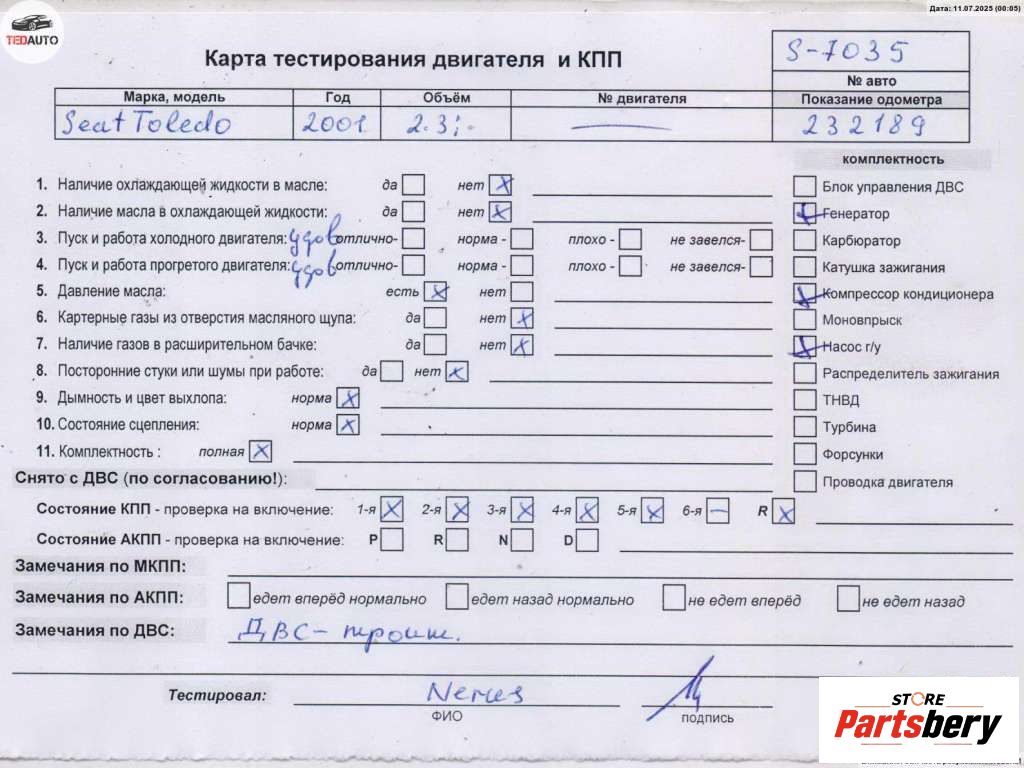 Дата: 11.07.2025 (00:05)
TEDAUTO
Карта тестирования двигателя и КПП
S-7035
№ авто
Марка, модель Год Объём № двигателя Показание одометра
Seat Toledo 2001 2.3 i 232189
комплектность
1. Наличие охлаждающей жидкости в масле: да нет X Блок управления ДВС
2. Наличие масла в охлаждающей жидкости: да нет X Генератор
3. Пуск и работа холодного двигателя: удов отлично- норма - плохо - не завелся- Карбюратор
4. Пуск и работа прогретого двигателя: удов отлично- норма - плохо - не завелся- Катушка зажигания
5. Давление масла: есть X нет Компрессор кондиционера
6. Картерные газы из отверстия масляного щупа: да нет X Моновпрыск
7. Наличие газов в расширительном бачке: да нет X Насос г/у
8. Посторонние стуки или шумы при работе: да нет X Распределитель зажигания
9. Дымность и цвет выхлопа: норма X ТНВД
10. Состояние сцепления: норма X Турбина
11. Комплектность : полная X Форсунки
Снято с ДВС (по согласованию!): Проводка двигателя
Состояние КПП - проверка на включение: 1-я X 2-я X 3-я X 4-я X 5-я X 6-я — R X
Состояние АКПП - проверка на включение: P R N D
Замечания по МКПП:
Замечания по АКПП: едет вперёд нормально едет назад нормально не едет вперёд не едет назад
Замечания по ДВС: ДВС - троит.
Тестировал:
ФИО подпись
STORE
Partsbery